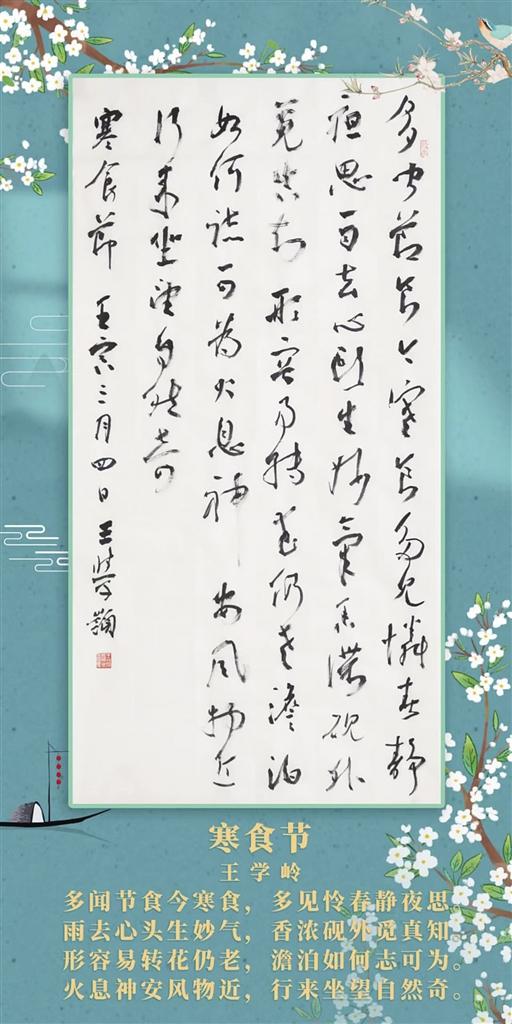 多聞節食今寒食多見憐春静
夜思雨去心頭生妙氣香濃硯外
覓真知形容易轉花仍老澹泊
如何誌可為火息神安風物近
行来坐望自然奇
寒食節 壬寅三月四日 王學嶺
寒食节
王学岭
多闻节食今寒食，多见怜春静夜思。
雨去心头生妙气，香浓砚外觅真知。
形容易转花仍老，澹泊如何志可为。
火息神安风物近，行来坐望自然奇。